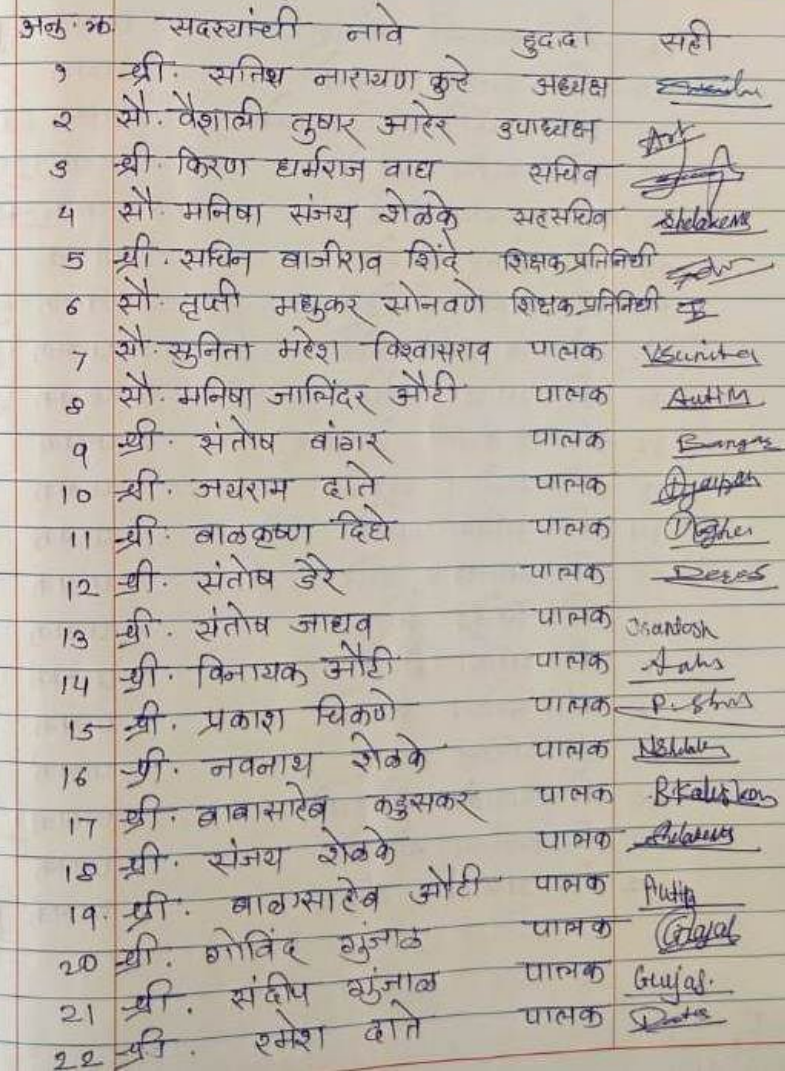 अनु. क्र. सदस्यांची नावे हुद्दा सही
१ श्री. सतिश नारायण कुटे अध्यक्ष
२ सौ. वैशाली तुषार आहेर उपाध्यक्ष
३ श्री. किरण धर्मराज वाघ सचिव
4 सौ. मनिषा संजय शेळके सहसचिव Shelakems
5 श्री. सचिन बाजीराव शिंदे शिक्षक प्रतिनिधी
6 सौ. तृप्ती मधुकर सोनवणे शिक्षक प्रतिनिधी
7 सौ. सुनिता महेश विश्वासराव पालक VSunita
8 सौ. मनिषा जालिंदर औटी पालक AutiM
9 श्री. संतोष बांगर पालक Bangar
10 श्री. जयराम दाते पालक
11 श्री. बाळकृष्ण दिघे पालक Dighe
12 श्री. संतोष डेरे पालक
13 श्री. संतोष जाधव पालक Jsantosh
14 श्री. विनायक औटी पालक
15 श्री. प्रकाश चिकणे पालक
16 श्री. नवनाथ शेळके पालक
17 श्री. बाबासाहेब कडुसकर पालक
18 श्री. संजय शेळके पालक
19. श्री. बाळासाहेब औटी पालक
20 श्री. गोविंद गुंजाळ पालक
21 श्री. संदीप गुंजाळ पालक Gunjal.
22 श्री. रमेश दाते पालक